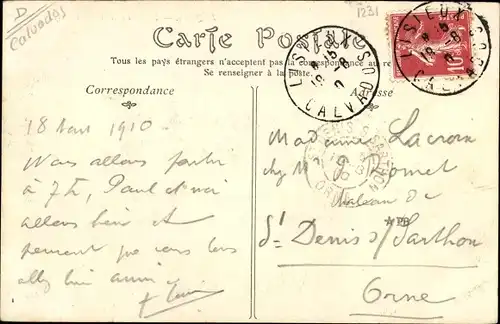 D
Calvados
1231
Carte Postale
Tous les pays étrangers n'acceptent pas la correspondance au re
Se renseigner à la poste.
Correspondance
Adresse
LISIEUX
CALVADOS
LISIEUX
CALVADOS
10
18 Aout 1910
Nous allons partir
à 7h, Paul et moi
allons bien et
pensons que vous
allez bien aussi
Madame Lacroix
chez M Romet
de
PB
St Denis s/ Sarthon
Orne
ORNE